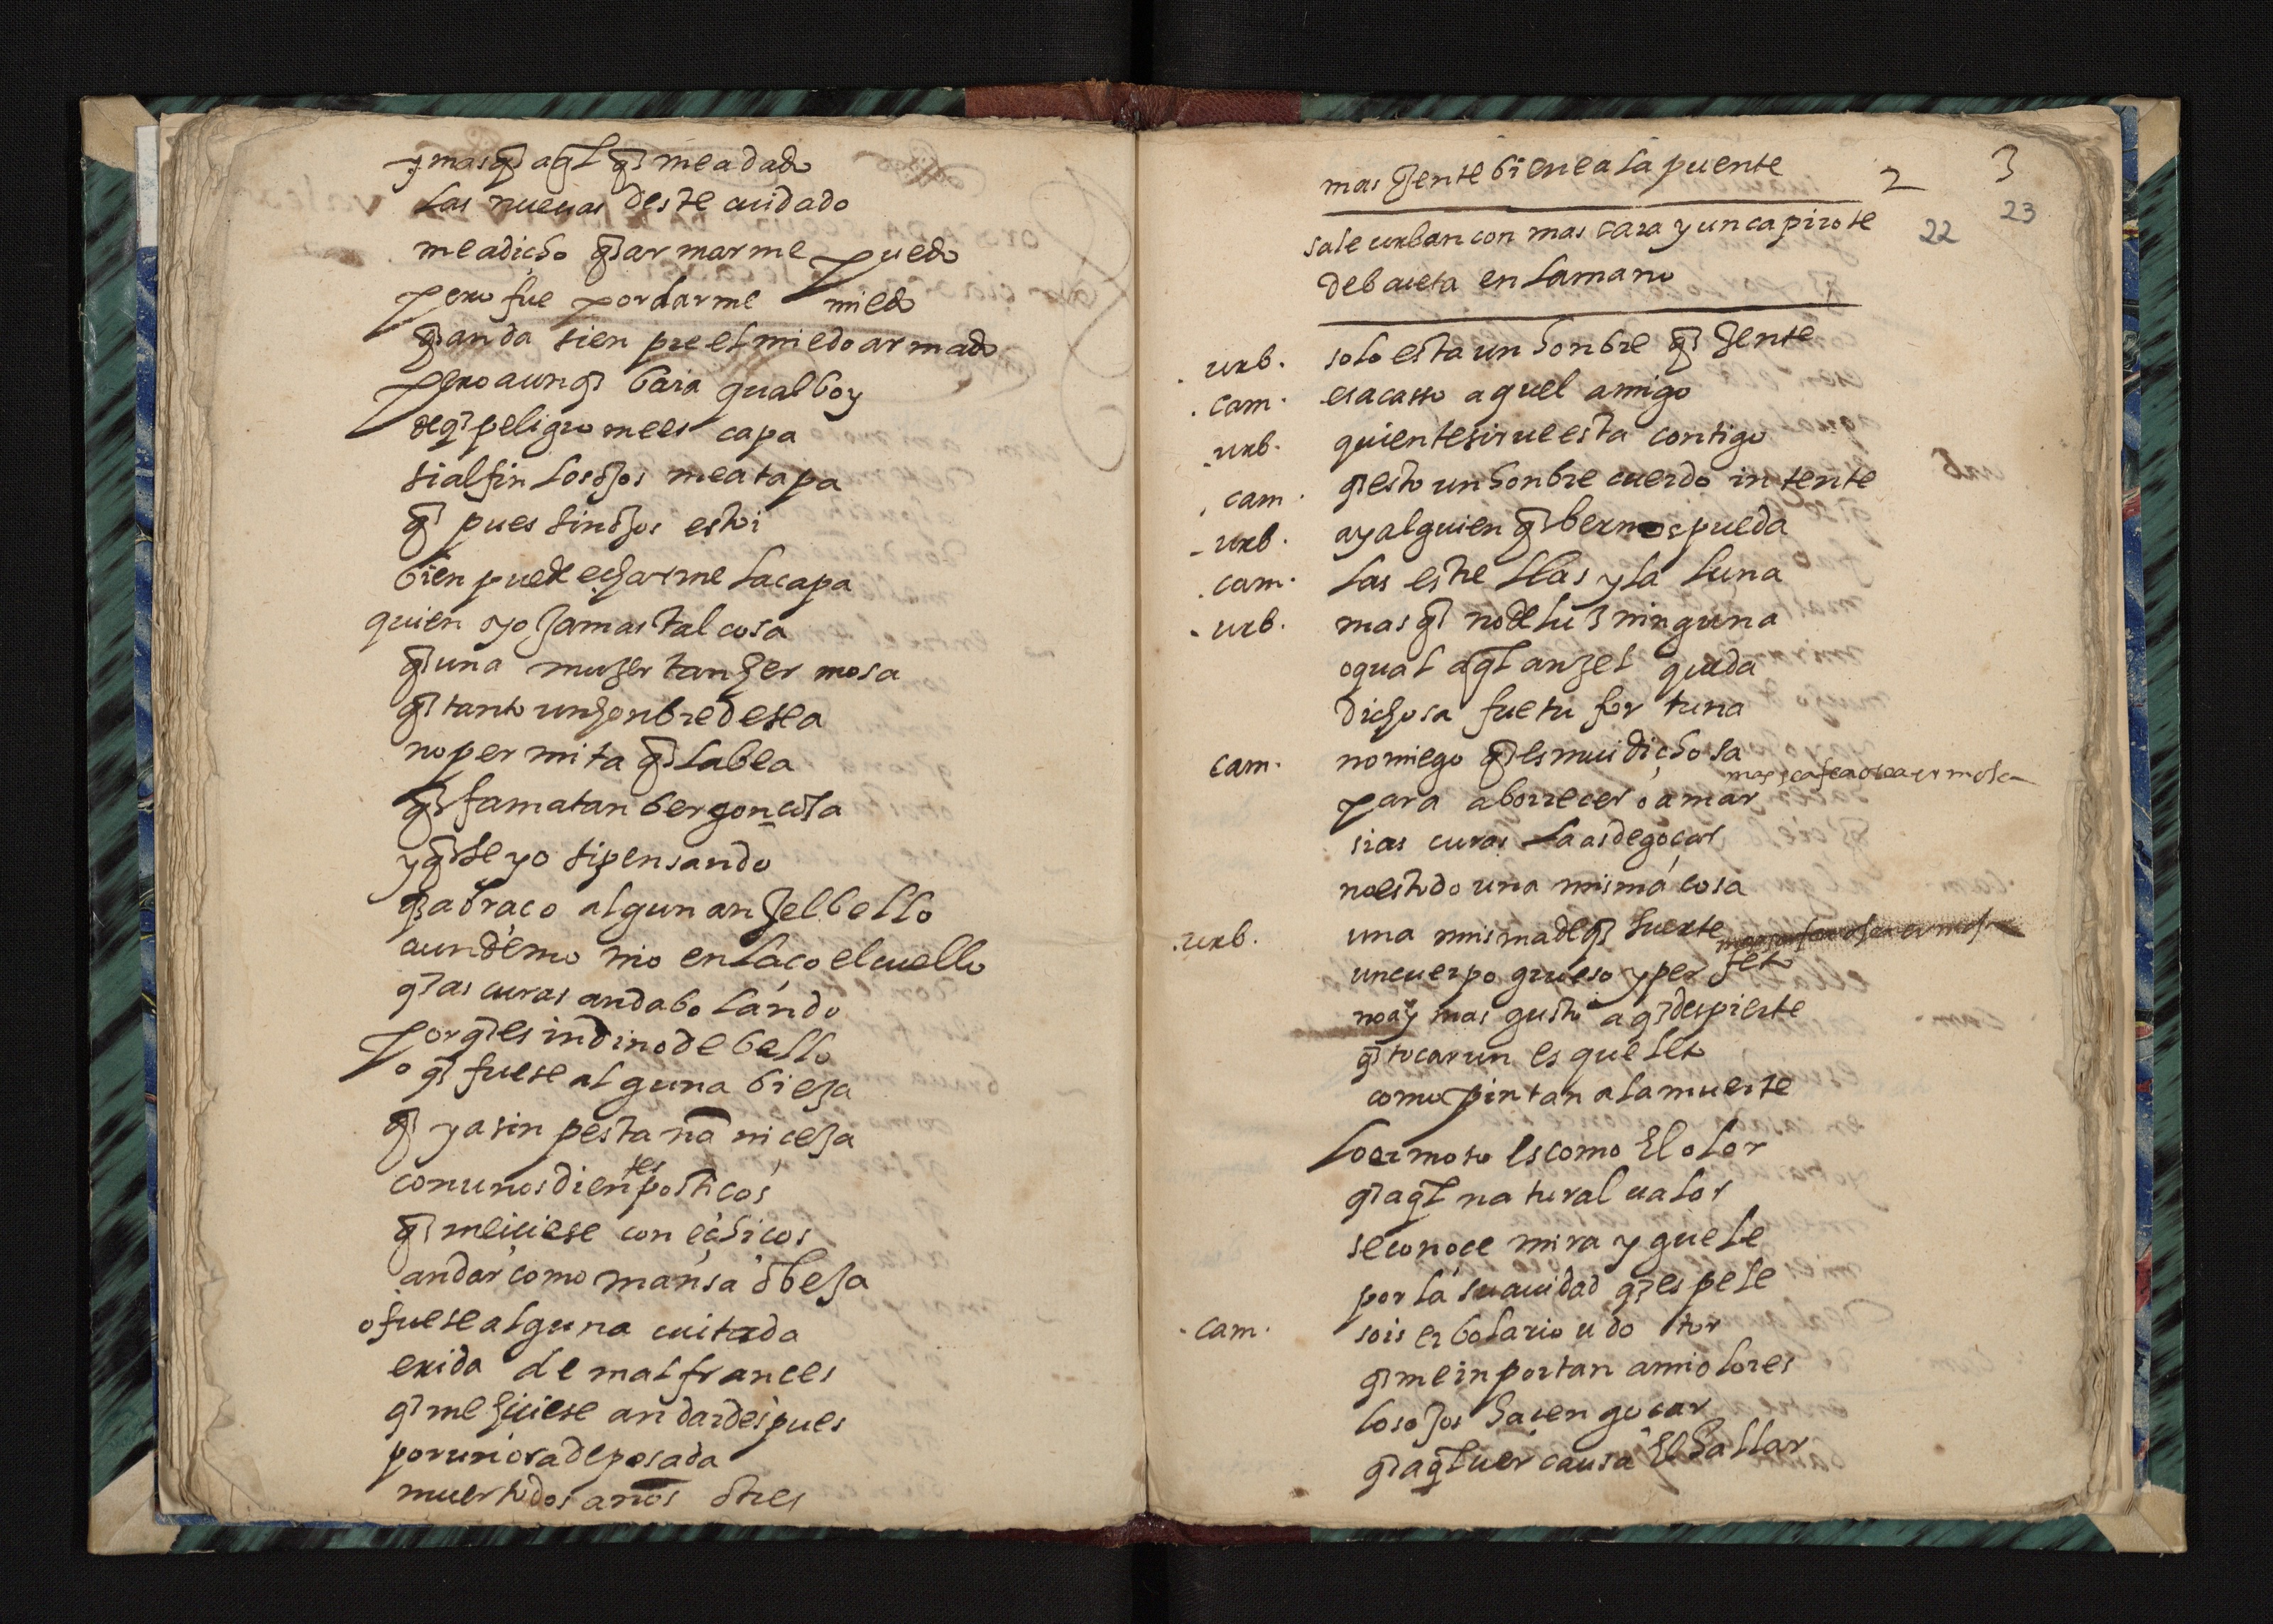 y mas q̃ aq̃l q̃ me a dado
las nueuas deste cuidado
me a dicho q̃ armarme puedo
pero fue por darme miedo
q̃ anda sienpre el miedo armado
pero aunq̃ baia qual boy
de q̃ peligro me escapa
si al fin los ojos me atapa
q̃ pues sin ojos estoi
bien puede echarme la capa
quien oyo jamas tal cosa
q̃ una muger tan hermosa
q̃ tanto un honbre desea
no permita q̃ la bea
q̃ fama tan bergonçosa
y q̃ se yo si pensando
q̃ abraço algun angel bello
a un demonio enlaço el cuello
q̃ ascuras anda bolando
porq̃ es indino de bello
o q̃ fuese alguna bieja
q̃ ya sin pestaña ni çeja
con unos dientes postiços
q̃ me iciese con echiços
andar como mansa obeja
o fuese alguna cuitada
erida de mal frances
q̃ me hiciese andar despues
por un ora de posada
muerto dos años o tres
mas gente biene a la puente
2 3
22 23
sale urban con mascara y un capirote
de baieta en la mano
urb. solo esta un honbre q̃ gente
cam. es acasso aquel amigo
urb. quien te sirue esta contigo
cam. q̃ esto un honbre cuerdo intente
urb. ay alguien q̃ bernos pueda
cam. las estrellas y la luna
urb. mas q̃ no de luz ninguna
o qual aq̃l angel queda
dichosa fue tu fortuna
cam. no niego q̃ es mui dichosa
mas sea fea o sea ermosa
para aborrecer o amar
si ascuras la as de goçar
no es todo una misma cosa
urb. una misma de q̃ suerte
un cuerpo grueso y perfeto
no ay mas gusto a q̃ despierte
q̃ tocar un esqueleto
como pintan a la muerte
lo ermoso es como el olor
q̃ aq̃l natural ualor
se conoce mira y guele
por la suauidad q̃ espele
cam. sois erbolario u dotor
q̃ me inportan a mi olores
los ojos hacen goçar
q̃ aq̃l uer causa el hallar